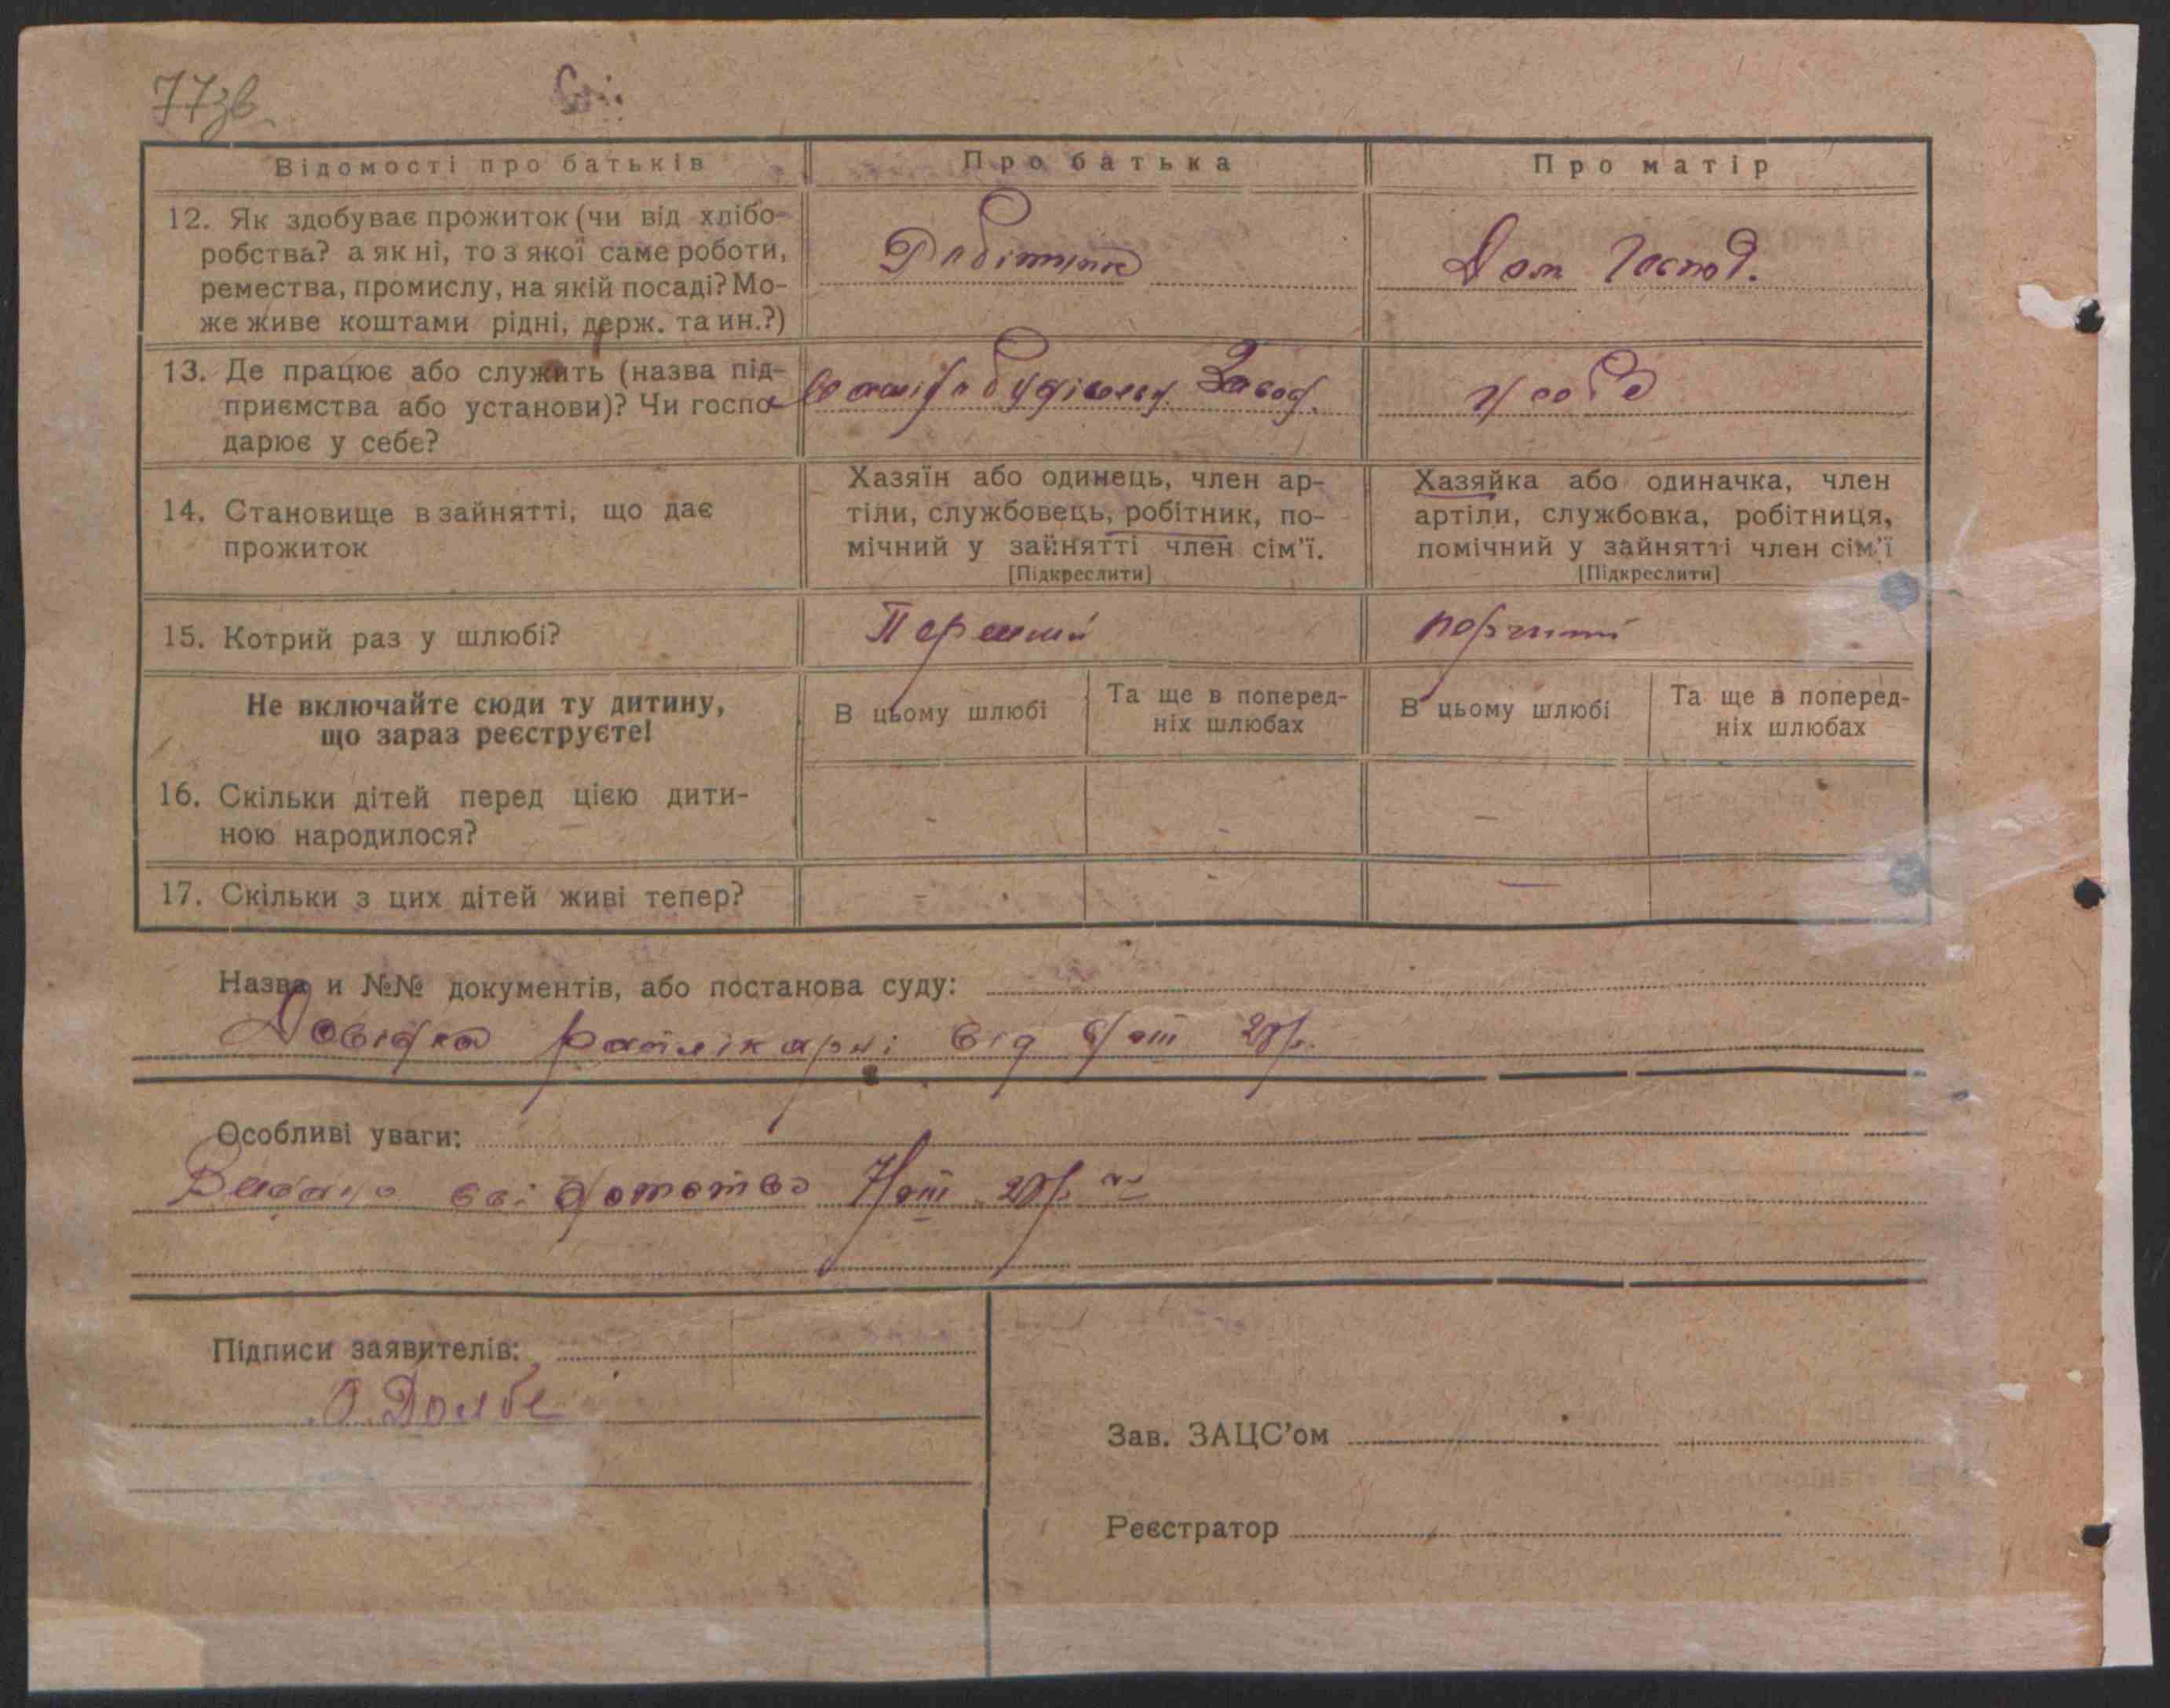 77зв.
Відомості про батьків
Про батька
Про матір
12. Як здобуває прожиток (чи від хлібо-
робства? а як ні, то з якої саме роботи,
ремества, промислу, на якій посаді? Мо-
же живе коштами рідні, держ. та ин.?)
Робітник
Дом Господ.
13. Де працює або служить (назва під-
приємства або установи)? Чи госпо-
дарює у себе?
Завод.
у себе
14. Становище в зайнятті, що дає
прожиток
Хазяїн або одинець, член ар-
тіли, службовець, робітник, по-
мічний у зайнятті член сім'ї.
[Підкреслити]
Хазяйка або одиначка, член
артіли, службовка, робітниця,
помічний у зайнятті член сім'ї
[Підкреслити]
15. Котрий раз у шлюбі?
Перший
перший
Не включайте сюди ту дитину,
що зараз реєструєте!
В цьому шлюбі
Та ще в поперед-
ніх шлюбах
В цьому шлюбі
Та ще в поперед-
ніх шлюбах
16. Скільки дітей перед цією дити-
ною народилося?
- - -
17. Скільки з цих дітей живі тепер?
- - -
Назва и №№ документів, або постанова суду:
Довідка райлікарні від
Особливі уваги:
Видано
Підписи заявителів:
Зав. ЗАЦС'ом
Реєстратор